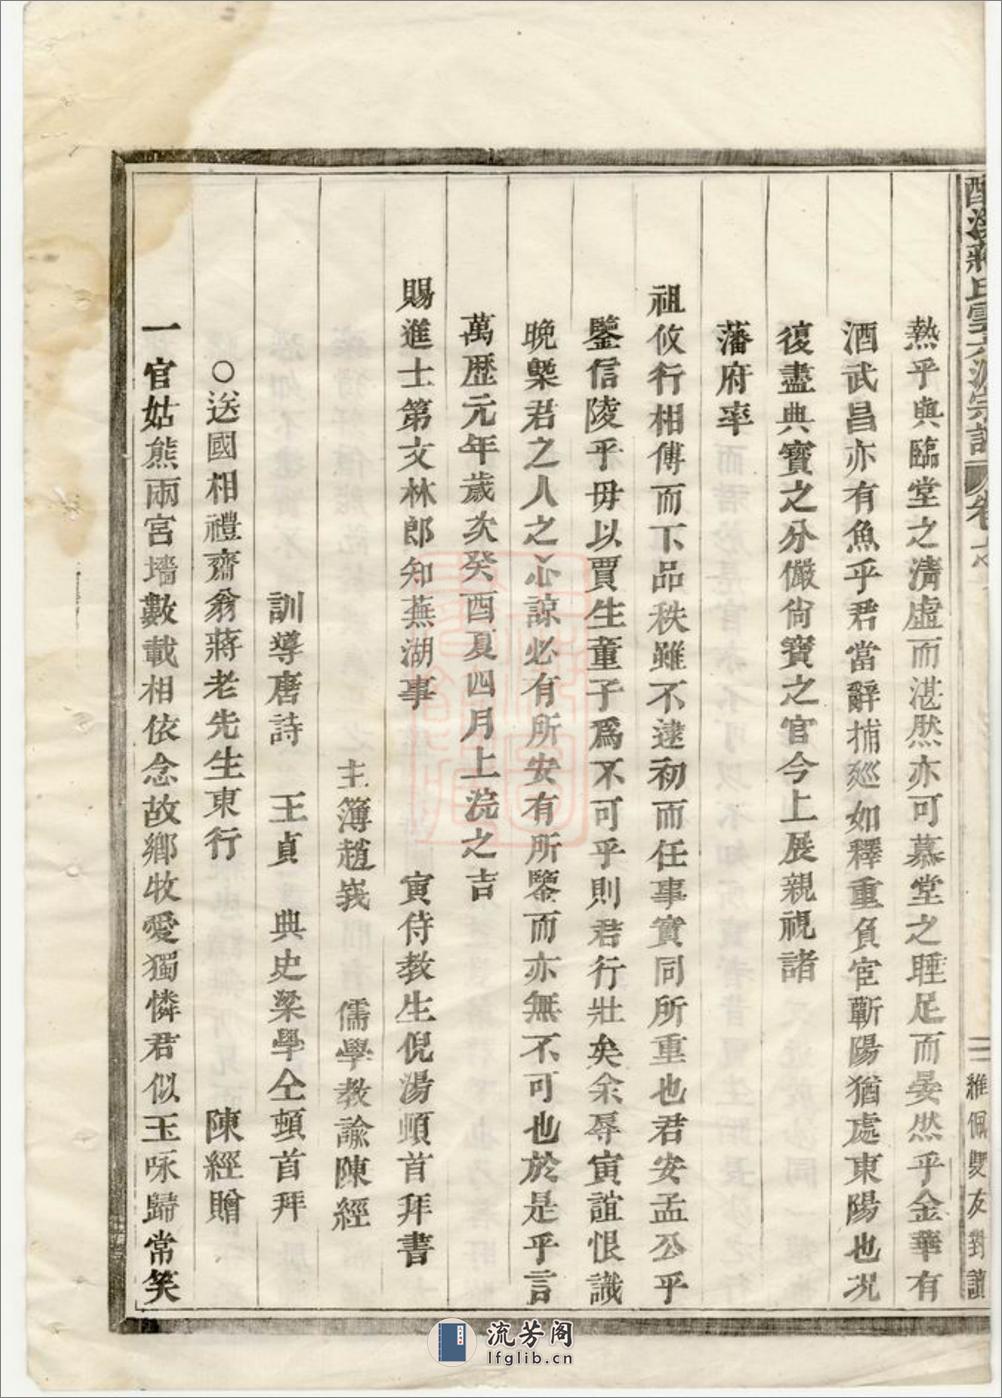 蔣氏雲 宗譜 卷
三 維佩雙友對讀
熱乎與臨堂之淸虛而湛然亦可慕堂之睡足而晏然乎金華有
酒武昌亦有魚乎君當辭捕廵如釋重負宦蘄陽猶處東陽也况
復盡典寶之分儼尙寶之官今上展親視諸
藩府率
祖攸行相傅而下品秩雖不逮初而任事實同所重也君安孟公乎
鑒信陵乎毋以賈生童子爲不可乎則君行壯矣余辱寅誼恨識
晚槩君之人之心諒必有所安有所鑒而亦無不可也於是乎言
萬歷元年歲次癸酉夏四月上浣之吉
賜進士第文林郎知蕪湖事 寅侍教生倪湯頓首拜書
主簿趙峩 儒學教諭陳經
訓導唐詩 王貞 典史梁學仝頓首拜
○送國相禮齋翁蔣老先生東行 陳經贈
一官姑熊兩宮墻數載相依念故鄉牧愛獨憐君似玉咏歸常笑
流芳阁
lfglib.cn